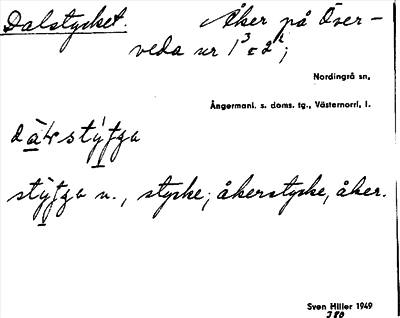 Dalstycket. Åker på Över-
veda nr 1³ o 2²;
Nordingrå sn,
Ångermanl. s. doms. tg., Västernorrl. l.
stycke; åkerstycke, åker.
Sven Hiller 1949
380